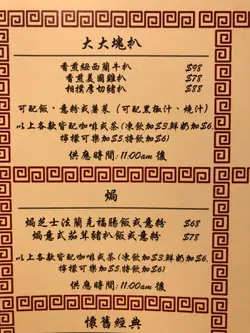 大大塊扒
香煎紐西蘭牛扒 $98
香煎美國雞扒 $78
相撲厚切豬扒 $88
可配飯、意粉或薯菜 (可配黑椒汁、燒汁)
以上各款皆配咖啡或茶(凍飲加$3,鮮奶加$6,
檸檬可樂加$5,特飲加$6)
供應時間：11:00am 後
焗
焗芝士法蘭克福腸飯或意粉 $68
焗意式茄茸豬扒飯或意粉 $78
以上各款皆配咖啡或茶(凍飲加$3,鮮奶加$6,
檸檬可樂加$5,特飲加$6)
供應時間：11:00am 後
懷舊經典